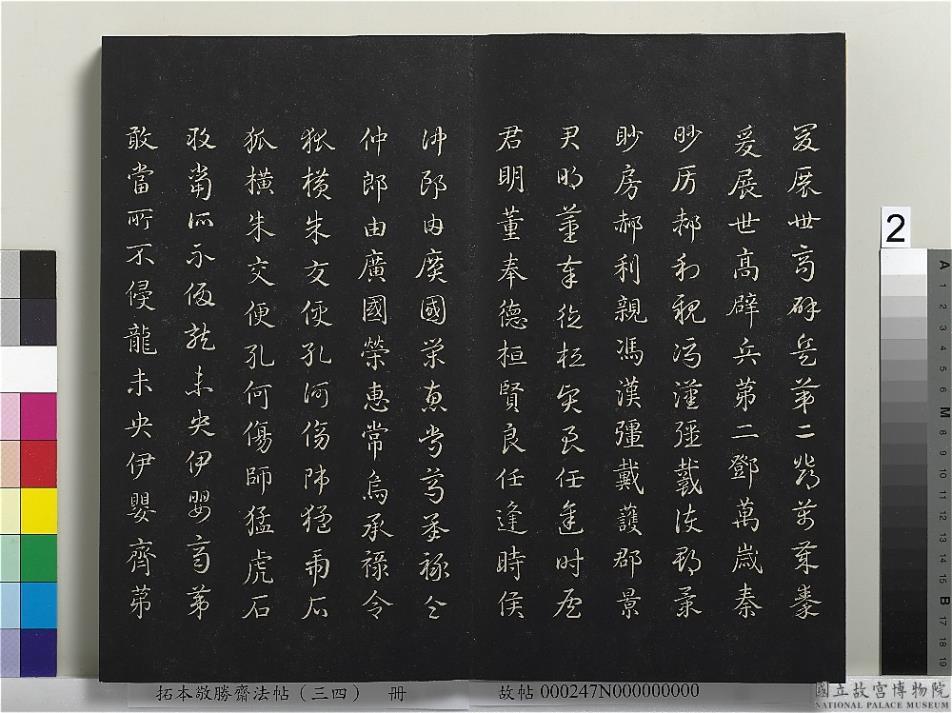 爰展世高辟兵第二鄧萬歲秦
爰展世高辟兵第二鄧萬歲秦
眇房郝利親馮漢彊戴護郡景
眇房郝利親馮漢彊戴護郡景
君明董奉德桓賢良任逢時侯
君明董奉德桓賢良任逢時侯
仲郎由廣國榮惠常烏承祿令
仲郎由廣國榮惠常烏承祿令
狐橫朱交便孔何傷師猛虎石
狐橫朱交便孔何傷師猛虎石
敢當所不侵龍未央伊嬰齊第
敢當所不侵龍未央伊嬰齊第
2
拓本敬勝齋法帖（三四） 册 故帖 000247N000000000
國立故宮博物院
NATIONAL PALACE MUSEUM